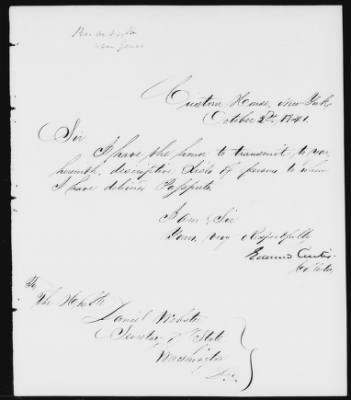 Custom House, New York
October 2d, 1841.
Sir
I have the honor to transmit to you
herewith, descriptive Lists of persons to whom
I have delivered Passports
I am, Sir
Yours, very respectfully
Edward Curtis
Collector
To
The Honble
Daniel Webster
Secretary of State
Washington